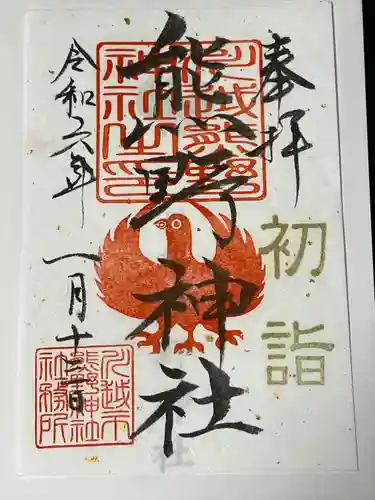 奉拝
初詣
熊野神社
令和六年
一月十三日
川越熊野
神社之印
川越市
熊野神社
社務所